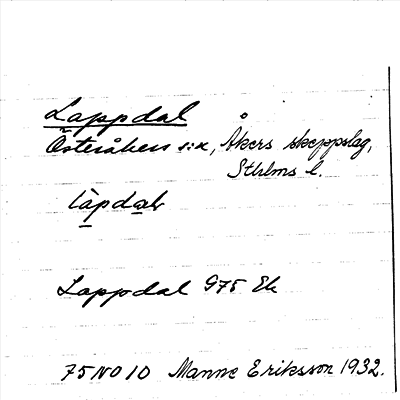 Lappdal
Österåkers s:n, Åkers skeppslag,
Sthlms l.
Lappdal G75 Ek
75 NO 10 Manne Eriksson 1932.